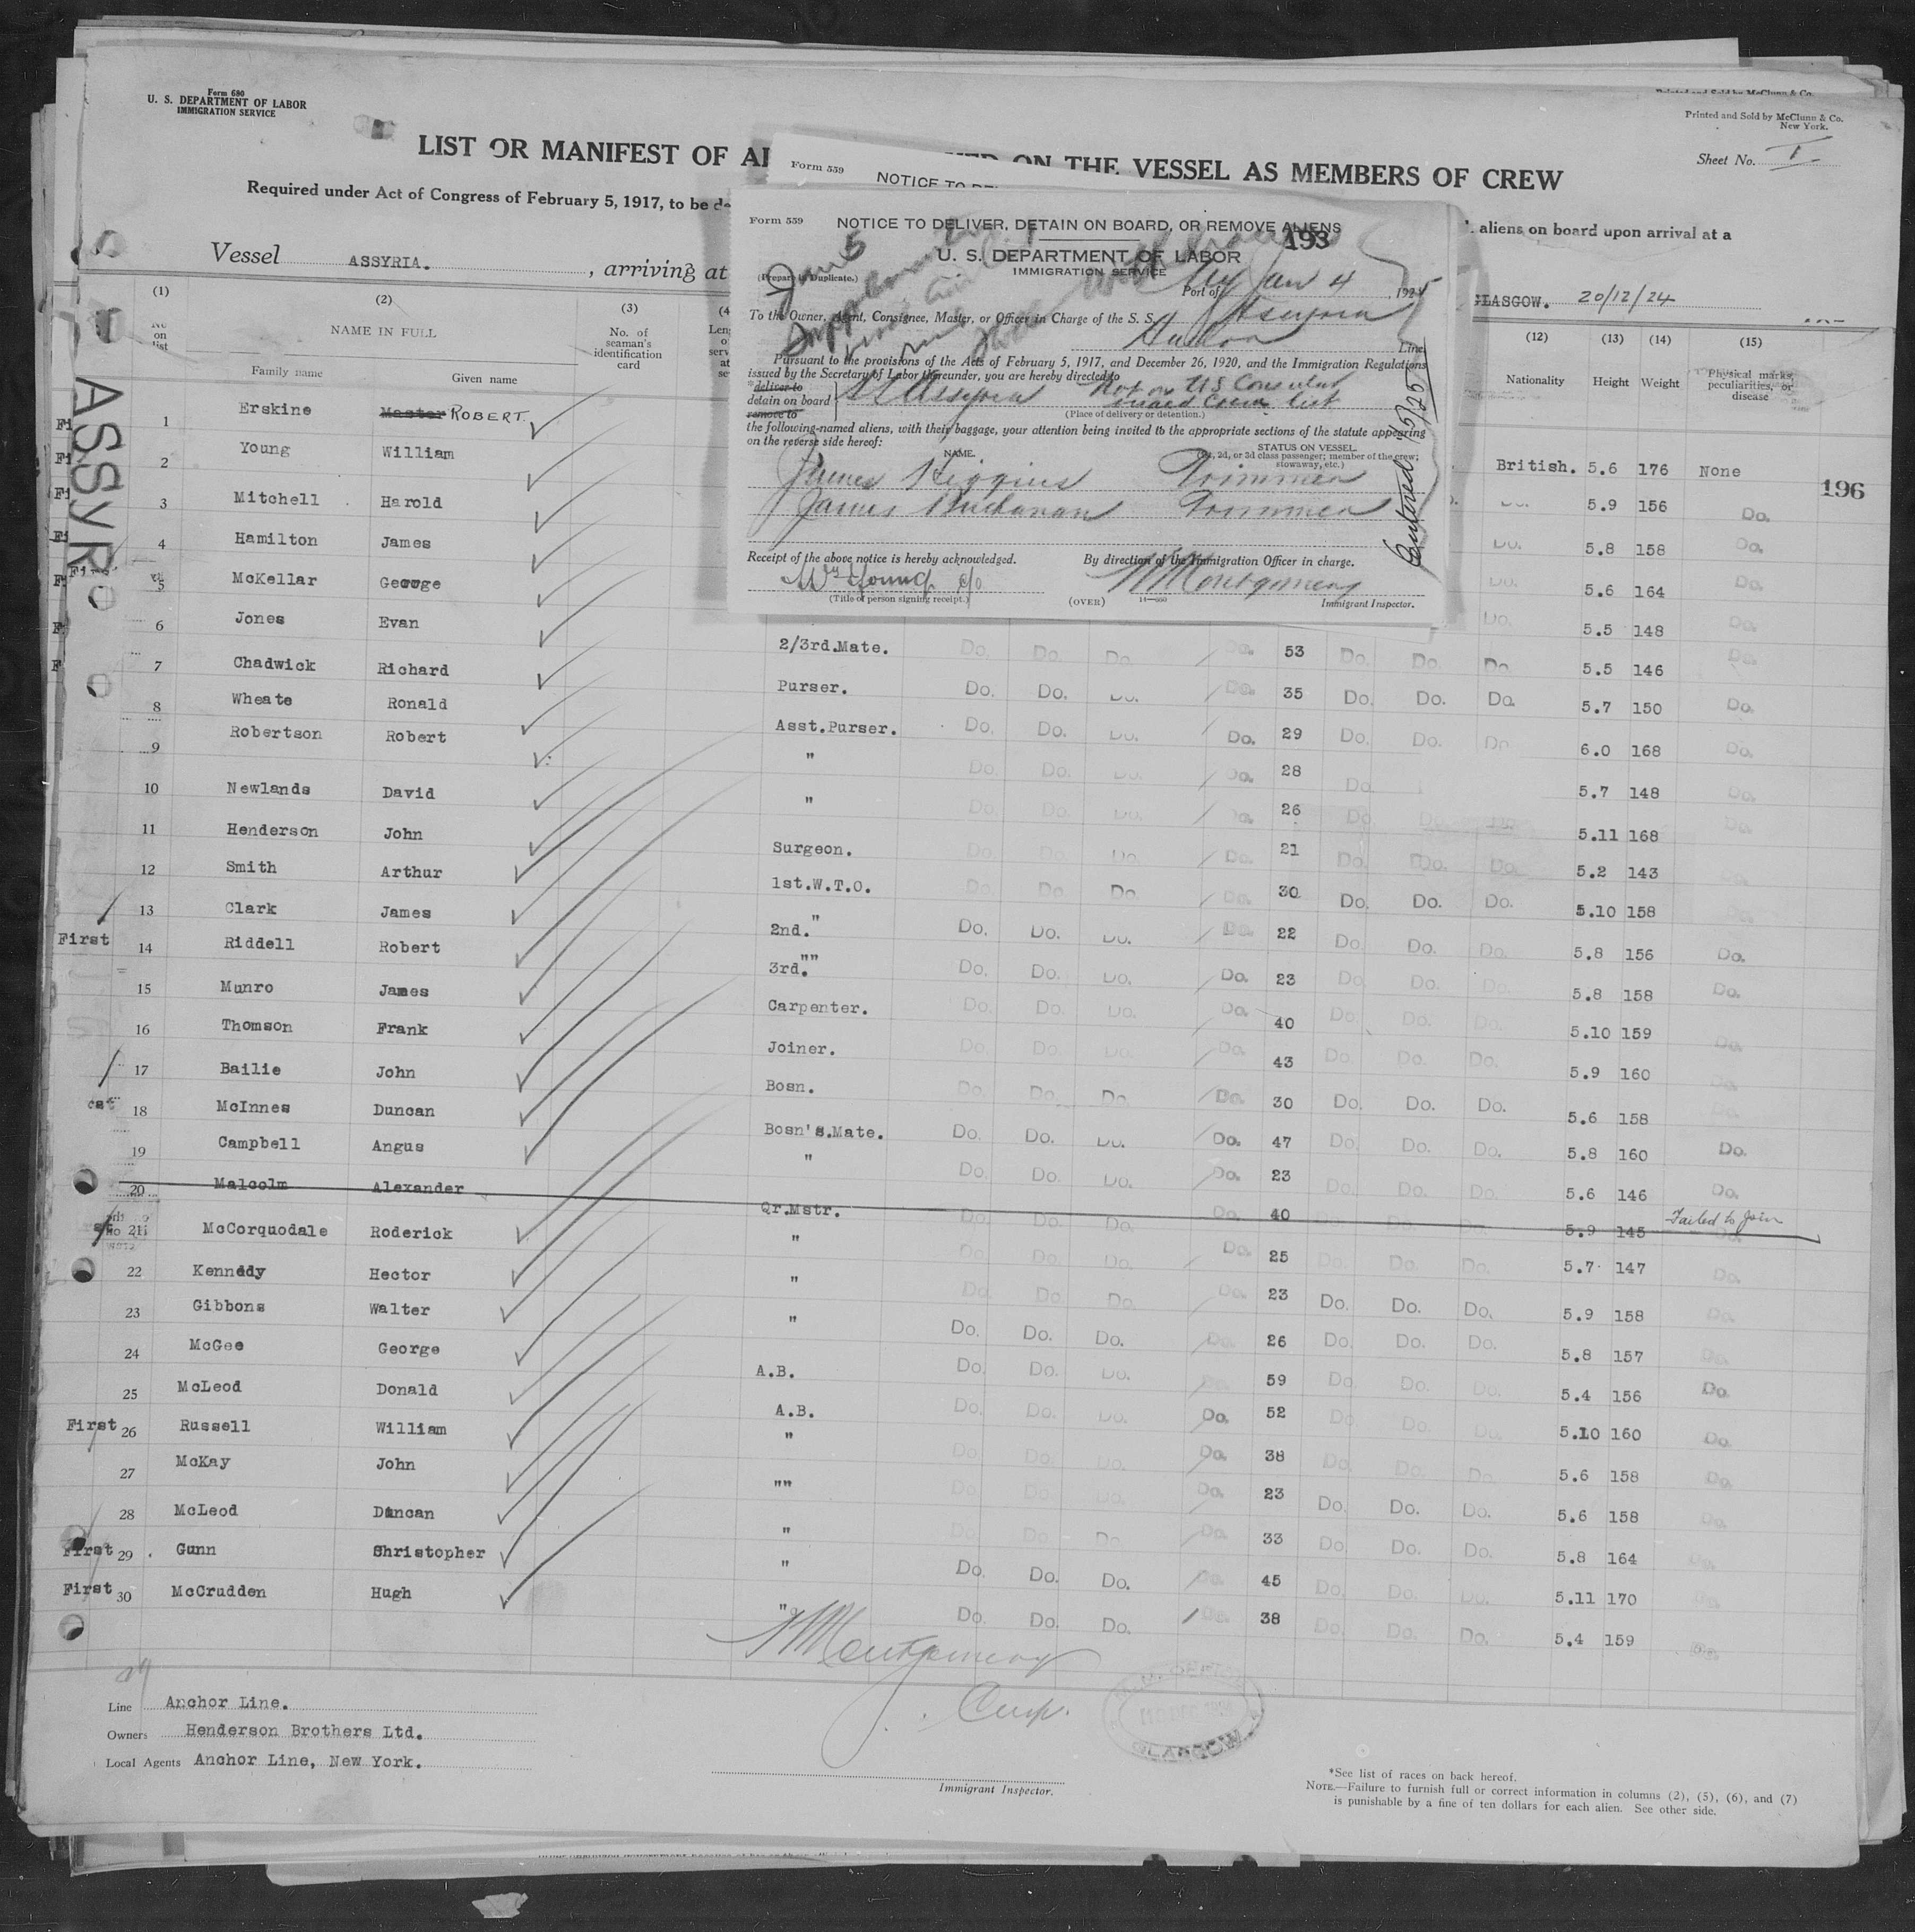 Form 680
U. S. DEPARTMENT OF LABOR
IMMIGRATION SERVICE
Printed and Sold by McClunn & Co.
New York.
Sheet No. I
LIST OR MANIFEST OF ON THE VESSEL AS MEMBERS OF CREW
Required under Act of Congress of February 5, 1917, to be aliens on board upon arrival at a
Vessel ASSYRIA. , arriving at GLASGOW. 20/12/24
Form 559
NOTICE TO
Form 559
NOTICE TO DELIVER, DETAIN ON BOARD, OR REMOVE ALIENS
193
U. S. DEPARTMENT OF LABOR
IMMIGRATION SERVICE
(Prepare in Duplicate.)
Jan 5
Port of NY Jan 4, 1925
To the Owner, Agent, Consignee, Master, or Officer in Charge of the S. S. Assyria
Anchor Line
Pursuant to the provisions of the Acts of February 5, 1917, and December 26, 1920, and the Immigration Regulations
issued by the Secretary of Labor thereunder, you are hereby directed to
*deliver to
detain on board SS Assyria Not on US Consular
visaed Crew list
remove to
(Place of delivery or detention.)
the following-named aliens, with their baggage, your attention being invited to the appropriate sections of the statute appearing
on the reverse side hereof:
NAME. STATUS ON VESSEL.
(1st, 2d, or 3d class passenger; member of the crew; stowaway, etc.)
James Higgins Trimmer
James Buchanan Trimmer
Receipt of the above notice is hereby acknowledged. By direction of the Immigration Officer in charge.
Wm Young c/o Montgomery
(Title of person signing receipt.) (OVER) Immigrant Inspector.
Entered 1/5/25
196
ASSYR
(1) (2) (3) (12) (13) (14) (15)
No on list NAME IN FULL No. of seaman's identification card Nationality Height Weight Physical marks, peculiarities, or disease
Family name Given name
1 Erskine Master ROBERT British. 5.6 176 None
2 Young William 5.9 156 Do.
3 Mitchell Harold Do. 5.8 158 Do.
4 Hamilton James Do. 5.6 164 Do.
First 5 McKellar George Do. 5.5 148 Do.
6 Jones Evan 2/3rd.Mate. Do. Do. Do. Do. 53 Do. Do. Do. 5.5 146 Do.
7 Chadwick Richard Purser. Do. Do. Do. Do. 35 Do. Do. Do. 5.7 150 Do.
8 Wheate Ronald Asst.Purser. Do. Do. Do. Do. 29 Do. Do. Do. 6.0 168 Do.
9 Robertson Robert " Do. Do. Do. Do. 28 Do. 5.7 148 Do.
10 Newlands David " Do. Do. Do. Do. 26 Do. Do. Do. 5.11 168 Do.
11 Henderson John Surgeon. Do. Do. Do. Do. 21 Do. Do. Do. 5.2 143
12 Smith Arthur 1st.W.T.O. Do. Do Do. Do. 30 Do. Do. Do. 5.10 158
13 Clark James 2nd." Do. Do. Do. Do. 22 Do. Do. Do. 5.8 156 Do.
First 14 Riddell Robert 3rd."" Do. Do. Do. Do. 23 Do Do. Do. 5.8 158 Do.
15 Munro James Carpenter. Do. Do. Do. Do. 40 Do. Do. Do. 5.10 159 Do.
16 Thomson Frank Joiner. Do. Do. Do. Do. 43 Do. Do. Do. 5.9 160 Do.
17 Bailie John Bosn. Do. Do. Do. Do. 30 Do. Do. Do. 5.6 158 Do.
18 McInnes Duncan Bosn's.Mate. Do. Do. Do. Do. 47 Do. Do. Do. 5.8 160 Do.
19 Campbell Angus " Do. Do. Do. Do. 23 Do. Do. Do. 5.6 146 Do.
20 Malcolm Alexander Qr.Mstr. Do. Do. Do. Do. 40 Do. Do. Do. 5.9 145 Failed to join
21 McCorquodale Roderick " Do. Do. Do. Do. 25 Do. Do. Do. 5.7 147 Do.
22 Kennddy Hector " Do. Do. Do. Do. 23 Do. Do. Do. 5.9 158 Do.
23 Gibbons Walter " Do. Do. Do. Do. 26 Do. Do. Do. 5.8 157 Do.
24 McGee George A.B. Do. Do. Do. 59 Do. Do. Do. 5.4 156 Do.
25 McLeod Donald A.B. Do. Do. Do. Do. 52 Do Do. Do. 5.10 160 Do.
First 26 Russell William " Do. Do. Do. Do. 38 Do. Do. Do. 5.6 158 Do.
27 McKay John "" Do. Do. Do. Do. 23 Do. Do. Do. 5.6 158 Do.
28 McLeod Duncan " Do. Do. Do. Do. 33 Do. Do. Do. 5.8 164 Do.
First 29 Gunn Christopher " Do. Do. Do. Do. 45 Do. Do. Do. 5.11 170 Do.
First 30 McCrudden Hugh " Do. Do. Do. Do. 38 Do. Do. Do. 5.4 159 Do.
Montgomery
Insp.
GLASGOW
Line Anchor Line.
Owners Henderson Brothers Ltd.
Local Agents Anchor Line, New York.
Immigrant Inspector.
*See list of races on back hereof.
NOTE.—Failure to furnish full or correct information in columns (2), (5), (6), and (7)
is punishable by a fine of ten dollars for each alien. See other side.